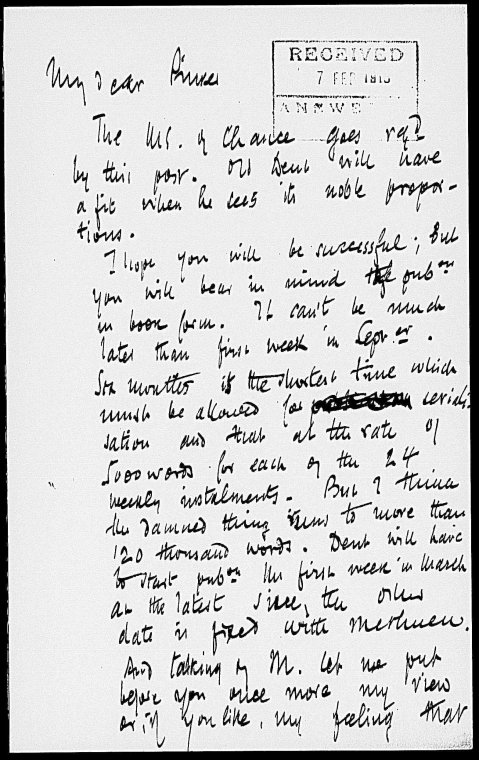 RECEIVED
7 FEB 1913
ANSWE
My dear Pinker
The MS. of Chance goes regd
by this post. Old Dent will have
a fit when he sees its noble propor-
tions.
I hope you will be successful; but
you will bear in mind the pubon
in book form. It can't be much
later than first week in Septer.
Six months is the shortest time which
must be allowed for seriali-
sation and that at the rate of
5000 words for each of the 24
weekly instalments. But I think
the damned thing runs to more than
120 thousand words. Dent will have
to start pubon the first week in March
at the latest since the other
date is fixed with Methuen.
And talking of M. let me put
before you once more my view
or, if you like, my feeling that